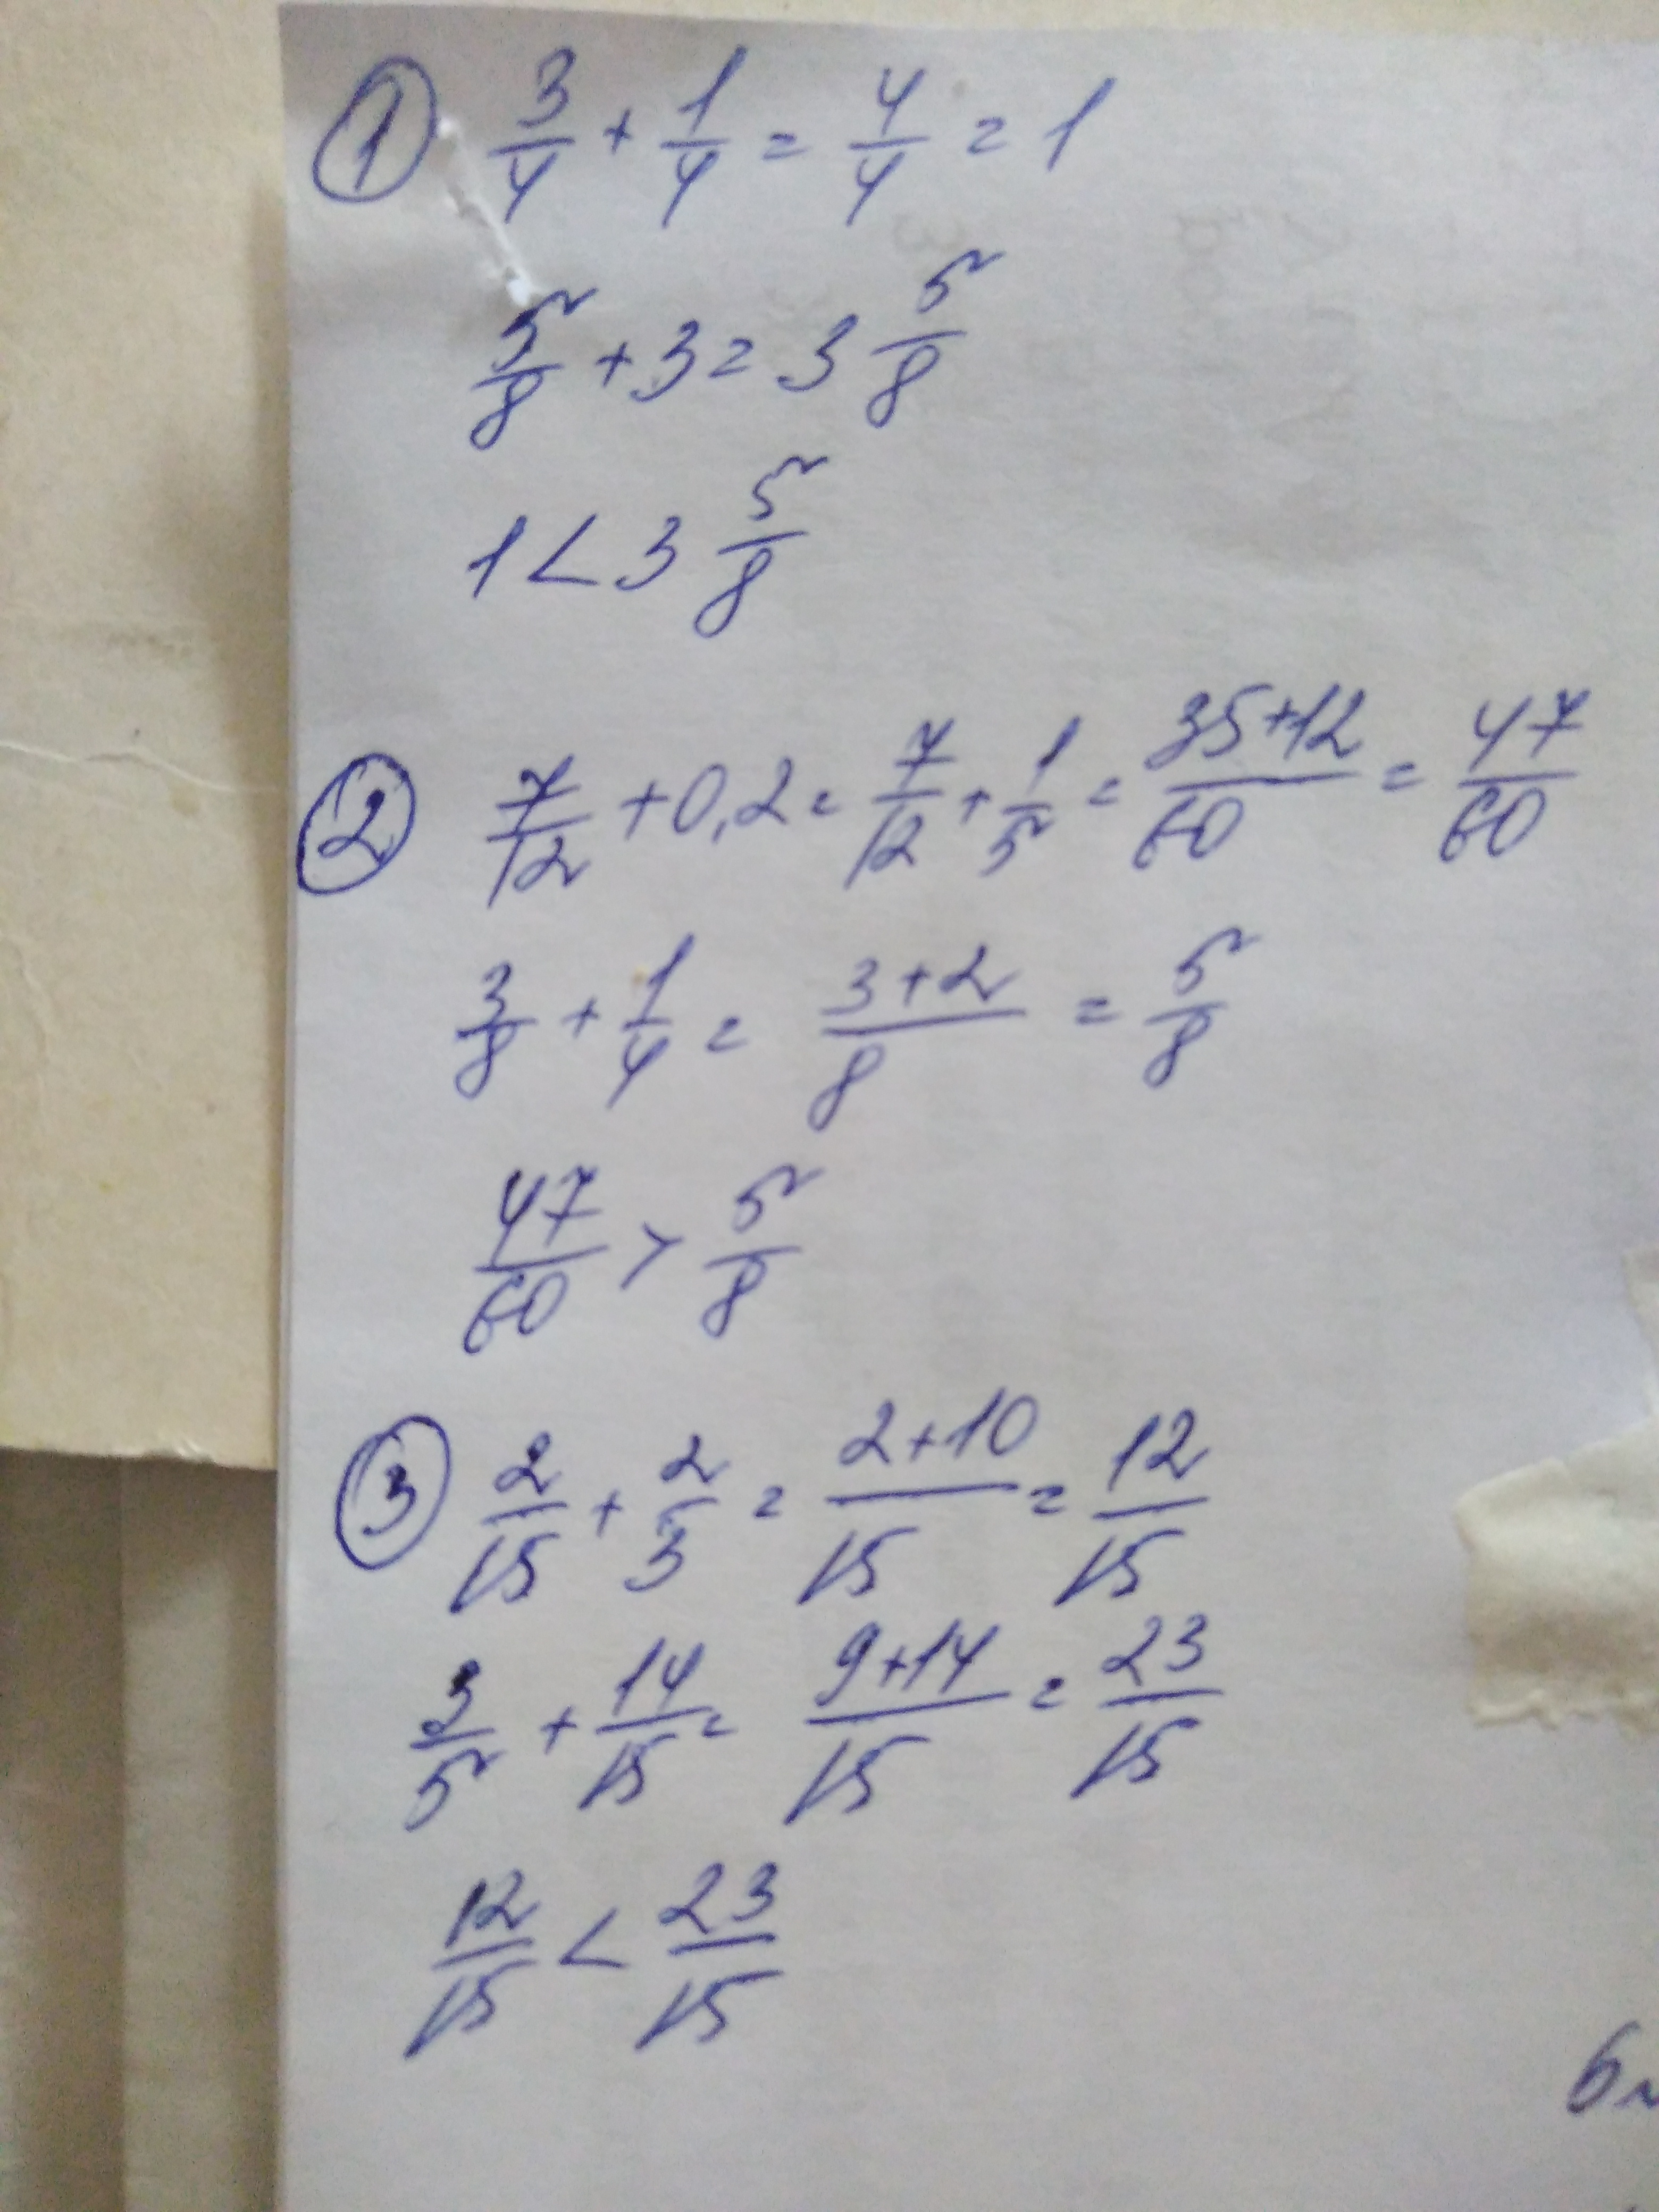 ① 3/4 + 1/4 = 4/4 = 1
5/8 + 3 = 3 5/8
1 < 3 5/8
② 7/12 + 0,2 = 7/12 + 1/5 = 35+12/60 = 47/60
3/8 + 1/4 = 3+2/8 = 5/8
47/60 > 5/8
③ 2/15 + 2/3 = 2+10/15 = 12/15
3/5 + 14/15 = 9+14/15 = 23/15
12/15 < 23/15